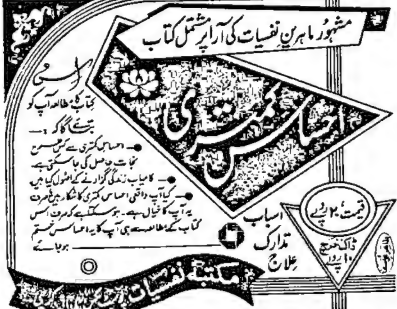 مشہور ماہرینِ نفسیات کی آرا پر مشتمل کتاب
احساسِ کمتری
اس
کتاب کا مطالعہ آپ کو
بتائے گا کہ :-
احساس کمتری سے کس طرح
نجات حاصل کی جا سکتی ہے
کامیاب زندگی گزارنے کے اصول کیا ہیں
کیا آپ واقعی احساس کمتری کا شکار ہیں یا صرف
یہ آپ کا خیال ہے۔ ہو سکتا ہے کہ صرف اس
کتاب کے مطالعہ سے ہی آپ کا یہ احساس ختم
ہو جائے
اسباب
تدارک
علاج
قیمت: ۲۰ روپے
ڈاک خرچ
۱۰ روپے
مکتبہ نفسیات